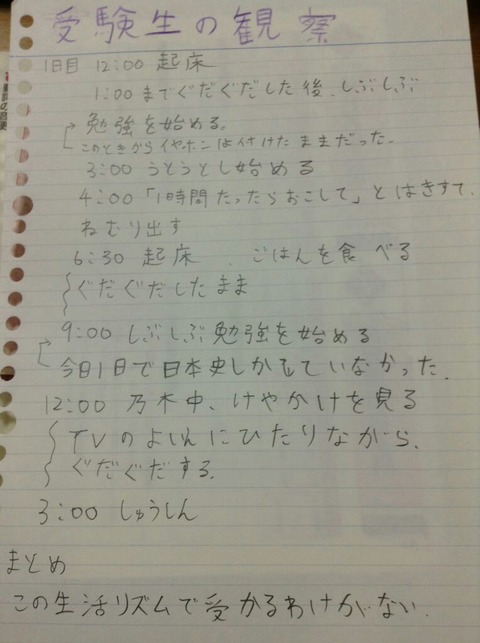 受験生の観察
1日目 12:00 起床
1:00までぐだぐだした後、しぶしぶ
勉強を始める。
このときからイヤホンは付けたままだった。
3:00 うとうとし始める
4:00「1時間たったらおこして」とはきすて、
ねむり出す
6:30 起床 、ごはんを食べる
ぐだぐだしたまま
9:00 しぶしぶ勉強を始める
今日1日で日本史しかもていなかった。
12:00 乃木中、けやかけを見る
TVのよいんにひたりながら、
ぐだぐだする。
3:00 しゅうしん
まとめ
この生活リズムで受かるわけがない。